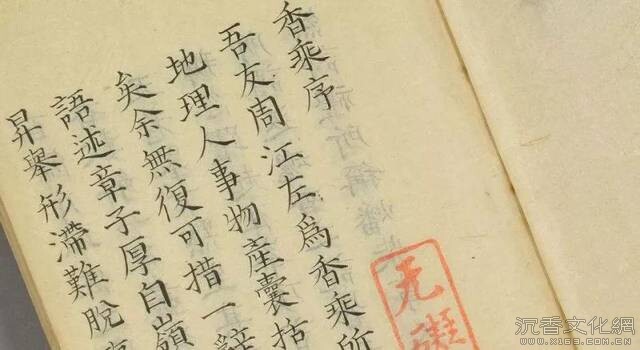 香乘序
吾友周江左爲香乘所
地理人事物產囊括
矣余無復可措一辭
語述章子厚自嶺
昇舉形滯難脫
无礙
沉香文化網
www.x168.com.cn